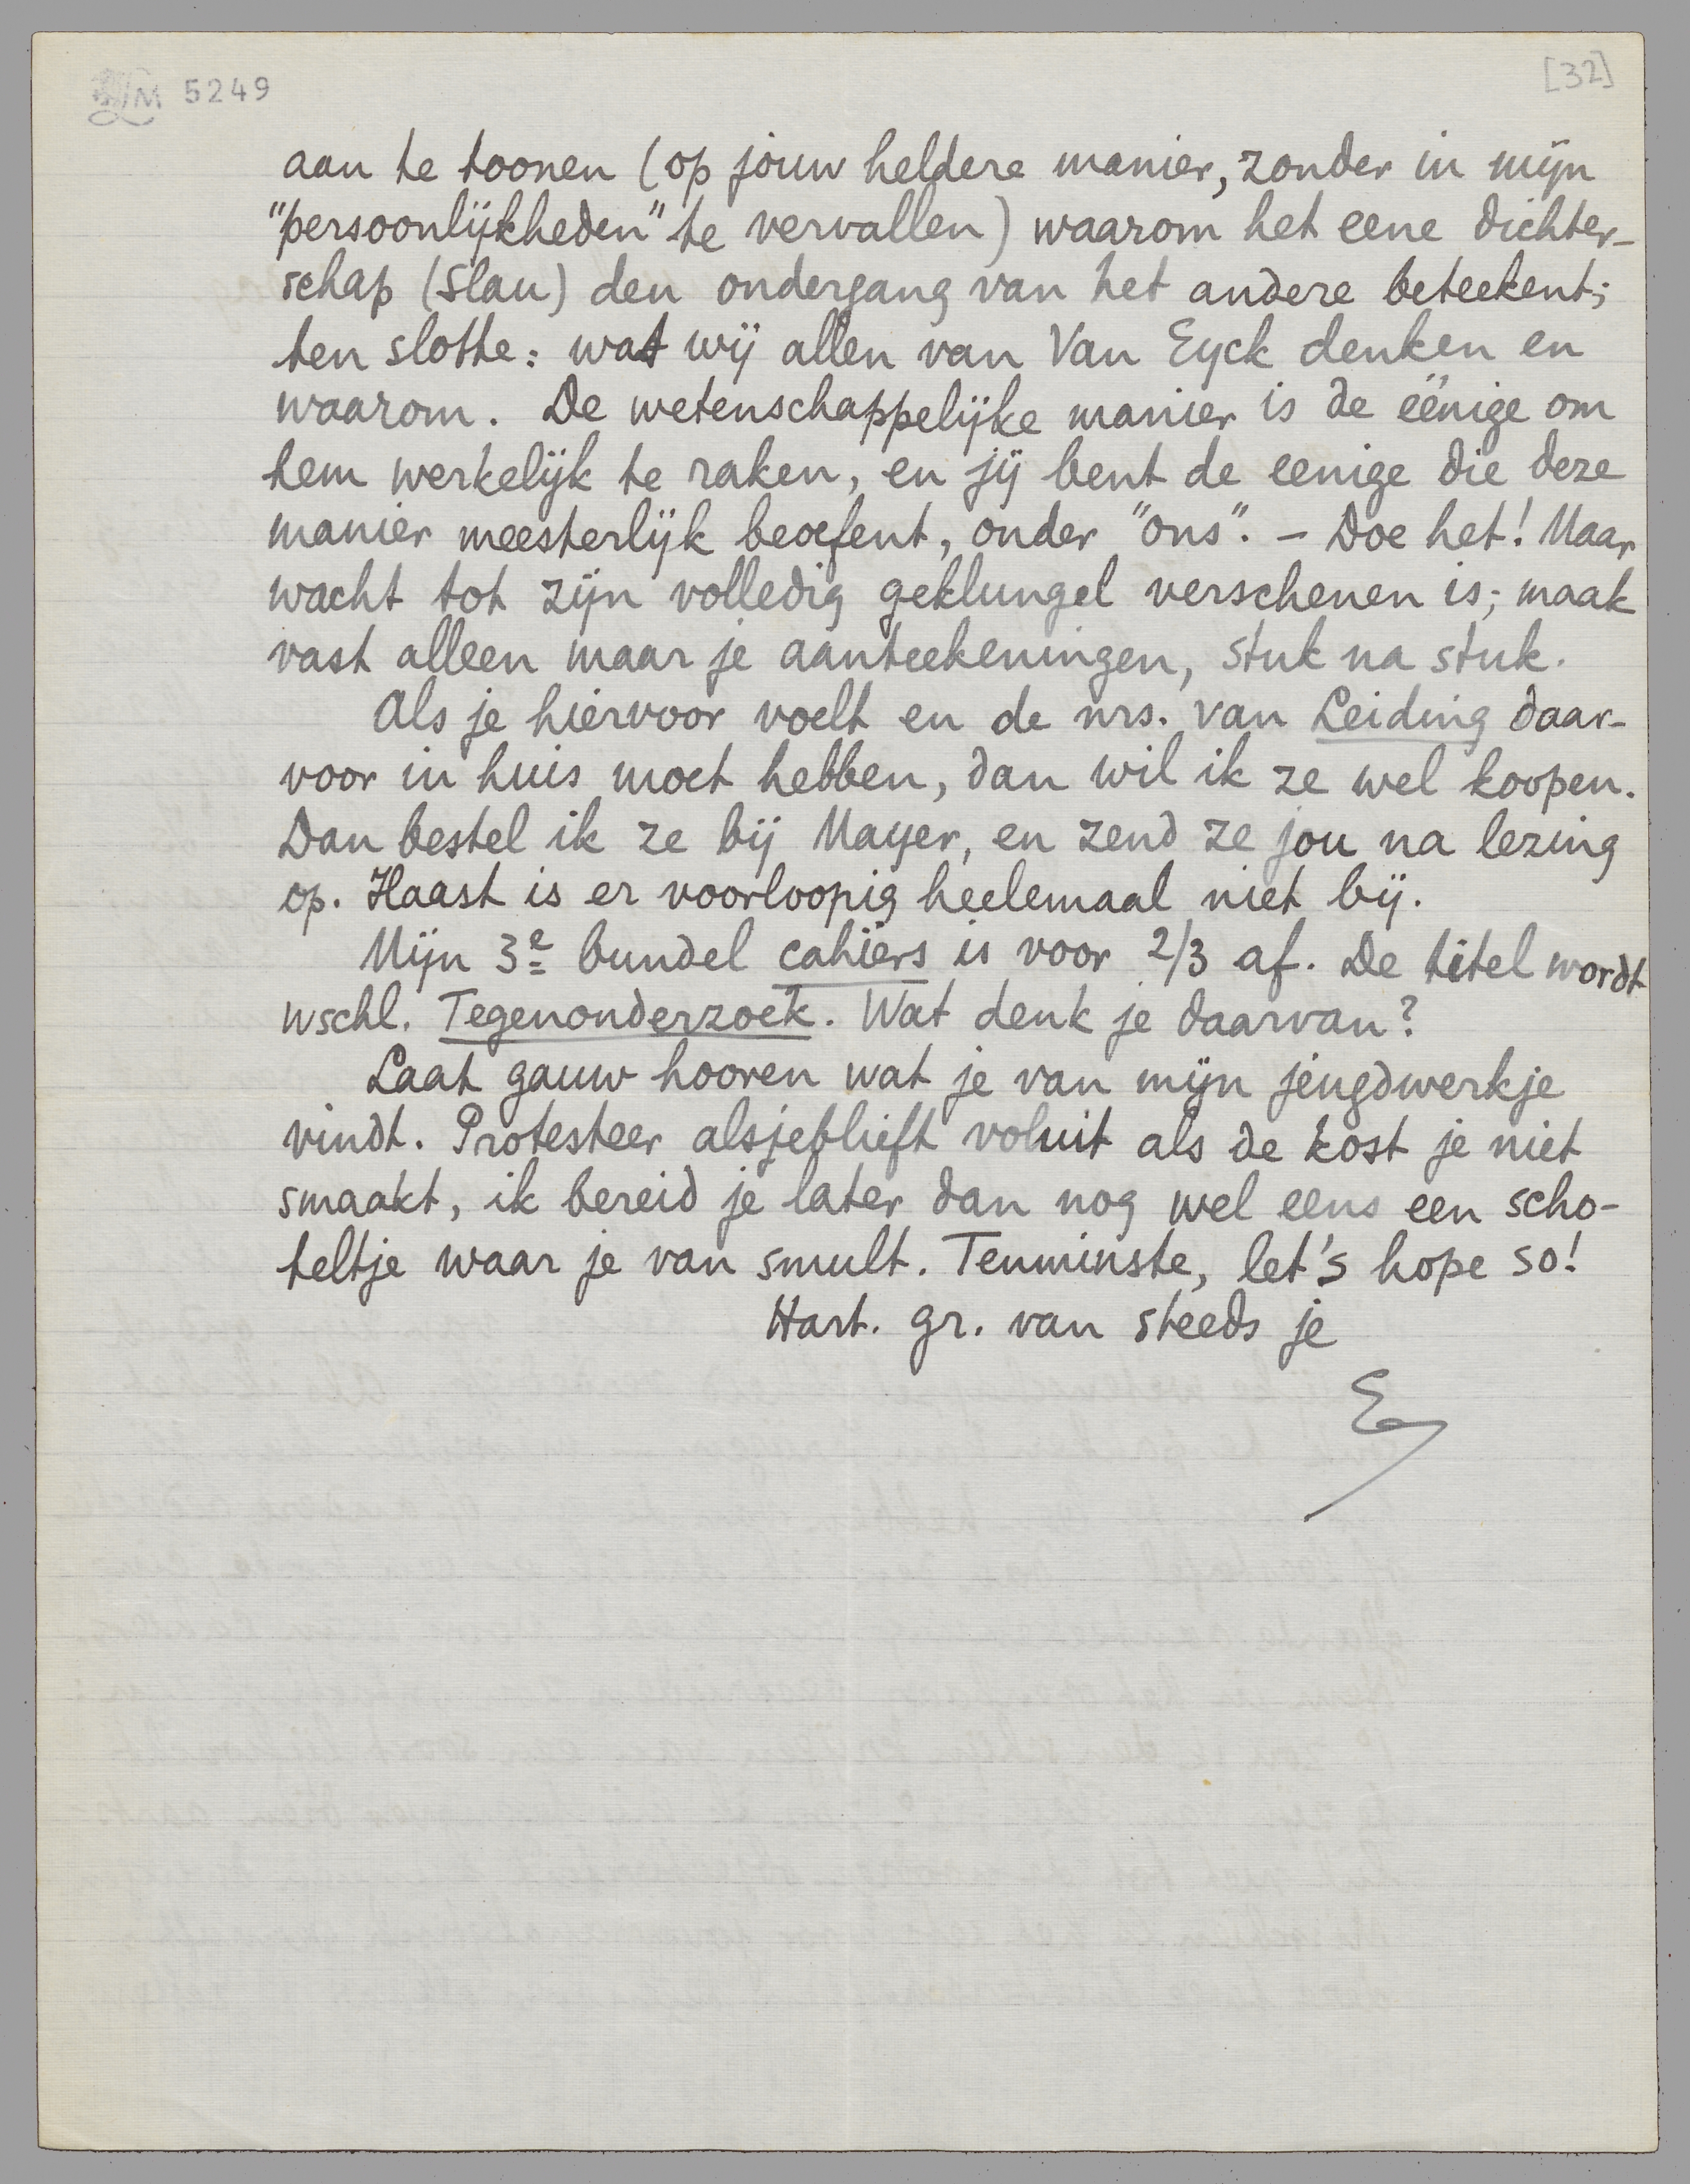 LM 5249
[32]
aan te toonen (op jouw heldere manier, zonder in mijn
"persoonlijkheden" te vervallen) waarom het eene dichter-
schap (Slau) den ondergang van het andere beteekent;
ten slotte: wat wij allen van Van Eyck denken en
waarom. De wetenschappelijke manier is de eénige om
hem werkelijk te raken, en jij bent de eenige die deze
manier meesterlijk beoefent, onder "ons". – Doe het! Maar
wacht tot zijn volledig geklungel verschenen is; maak
vast alleen maar je aanteekeningen, stuk na stuk.
Als je hiervoor voelt en de nrs. van Leiding daar-
voor in huis moet hebben, dan wil ik ze wel koopen.
Dan bestel ik ze bij Mayer, en zend ze jou na lezing
op. Haast is er voorloopig heelemaal niet bij.
Mijn 3e bundel cahiers is voor 2/3 af. De titel wordt
wschl. Tegenonderzoek. Wat denk je daarvan?
Laat gauw hooren wat je van mijn jeugdwerkje
vindt. Protesteer alsjeblieft voluit als de kost je niet
smaakt, ik bereid je later dan nog wel eens een scho-
teltje waar je van smult. Tenminste, let's hope so!
Hart. gr. van steeds je
E